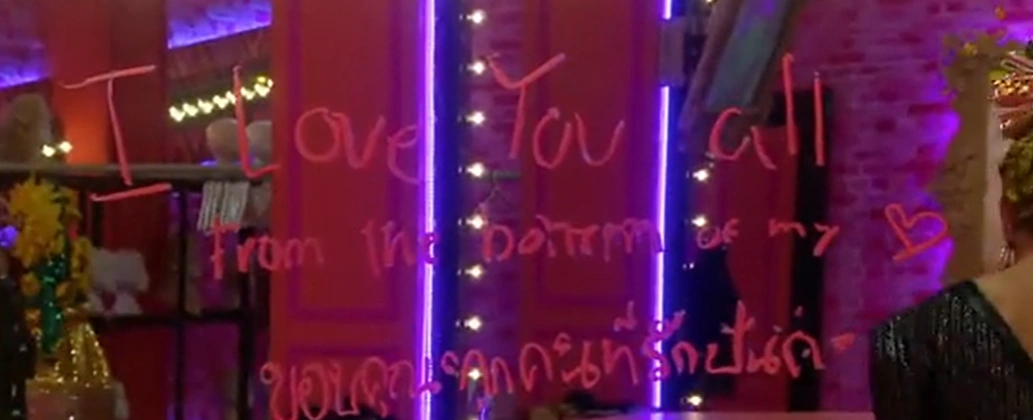 I Love You all
from the bottom of my ♡
ขอบคุณทุกคนที่รักปันค่ะ